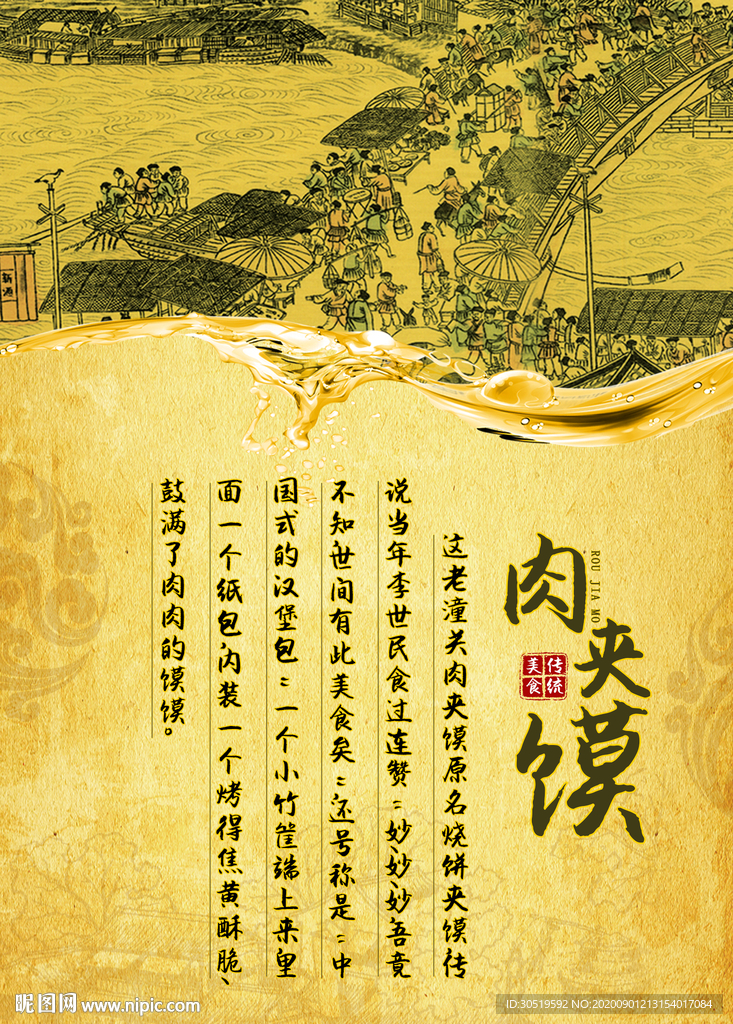 新酒
肉夹馍
ROU JIA MO
传统
美食
这老潼关肉夹馍原名烧饼夹馍传
说当年李世民食过连赞：妙妙妙吾竟
不知世间有此美食矣：还号称是：中
国式的汉堡包：一个小竹筐端上来里
面一个纸包内装一个烤得焦黄酥脆、
鼓满了肉肉的馍馍。
昵图网 www.nipic.com
ID:30519592 NO:20200901213154017084